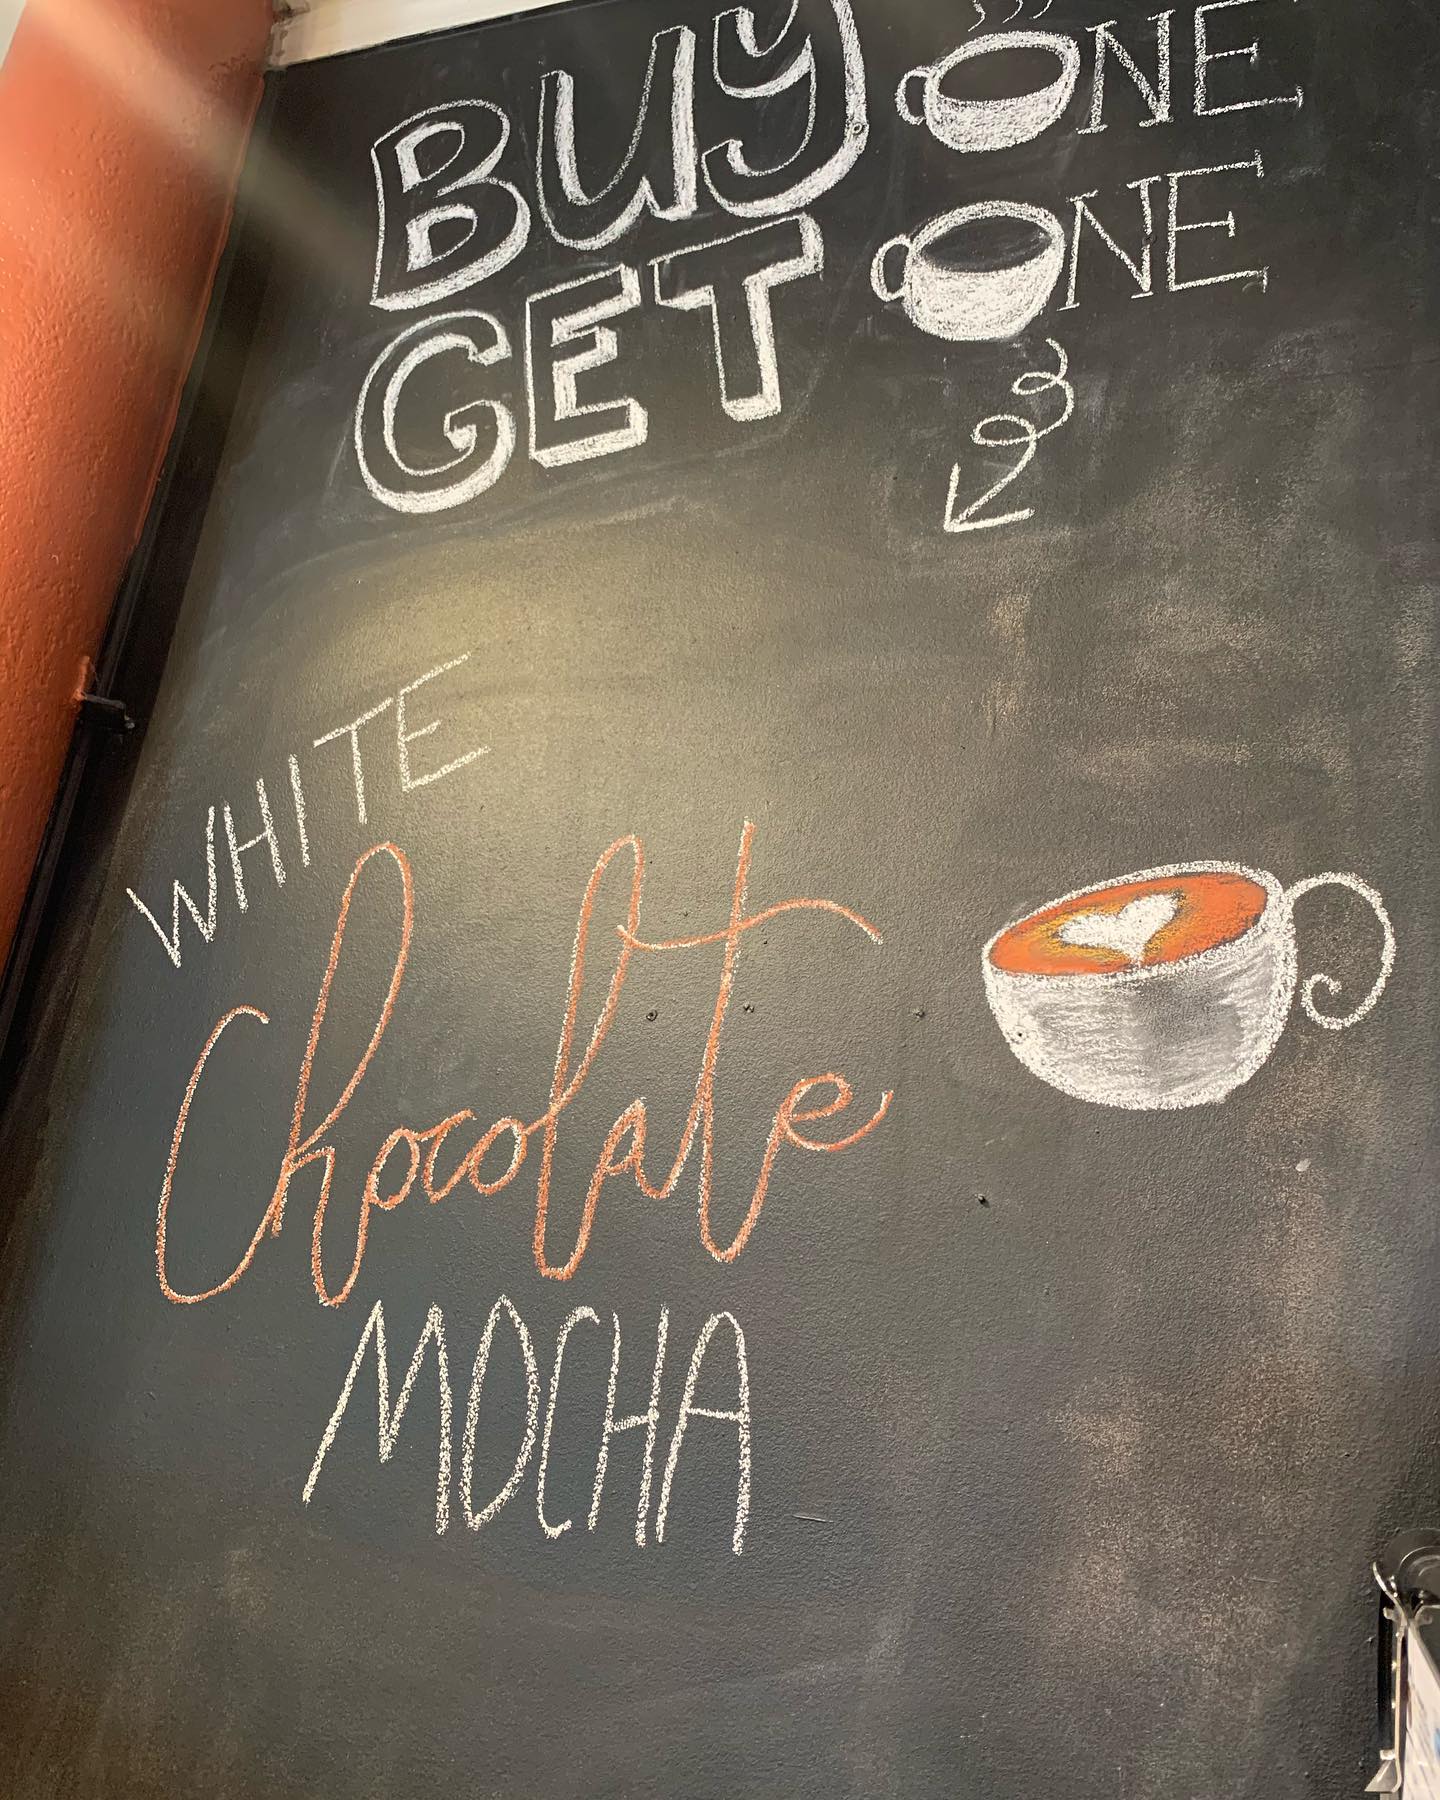 BUY ONE
GET ONE
WHITE
Chocolate
MOCHA